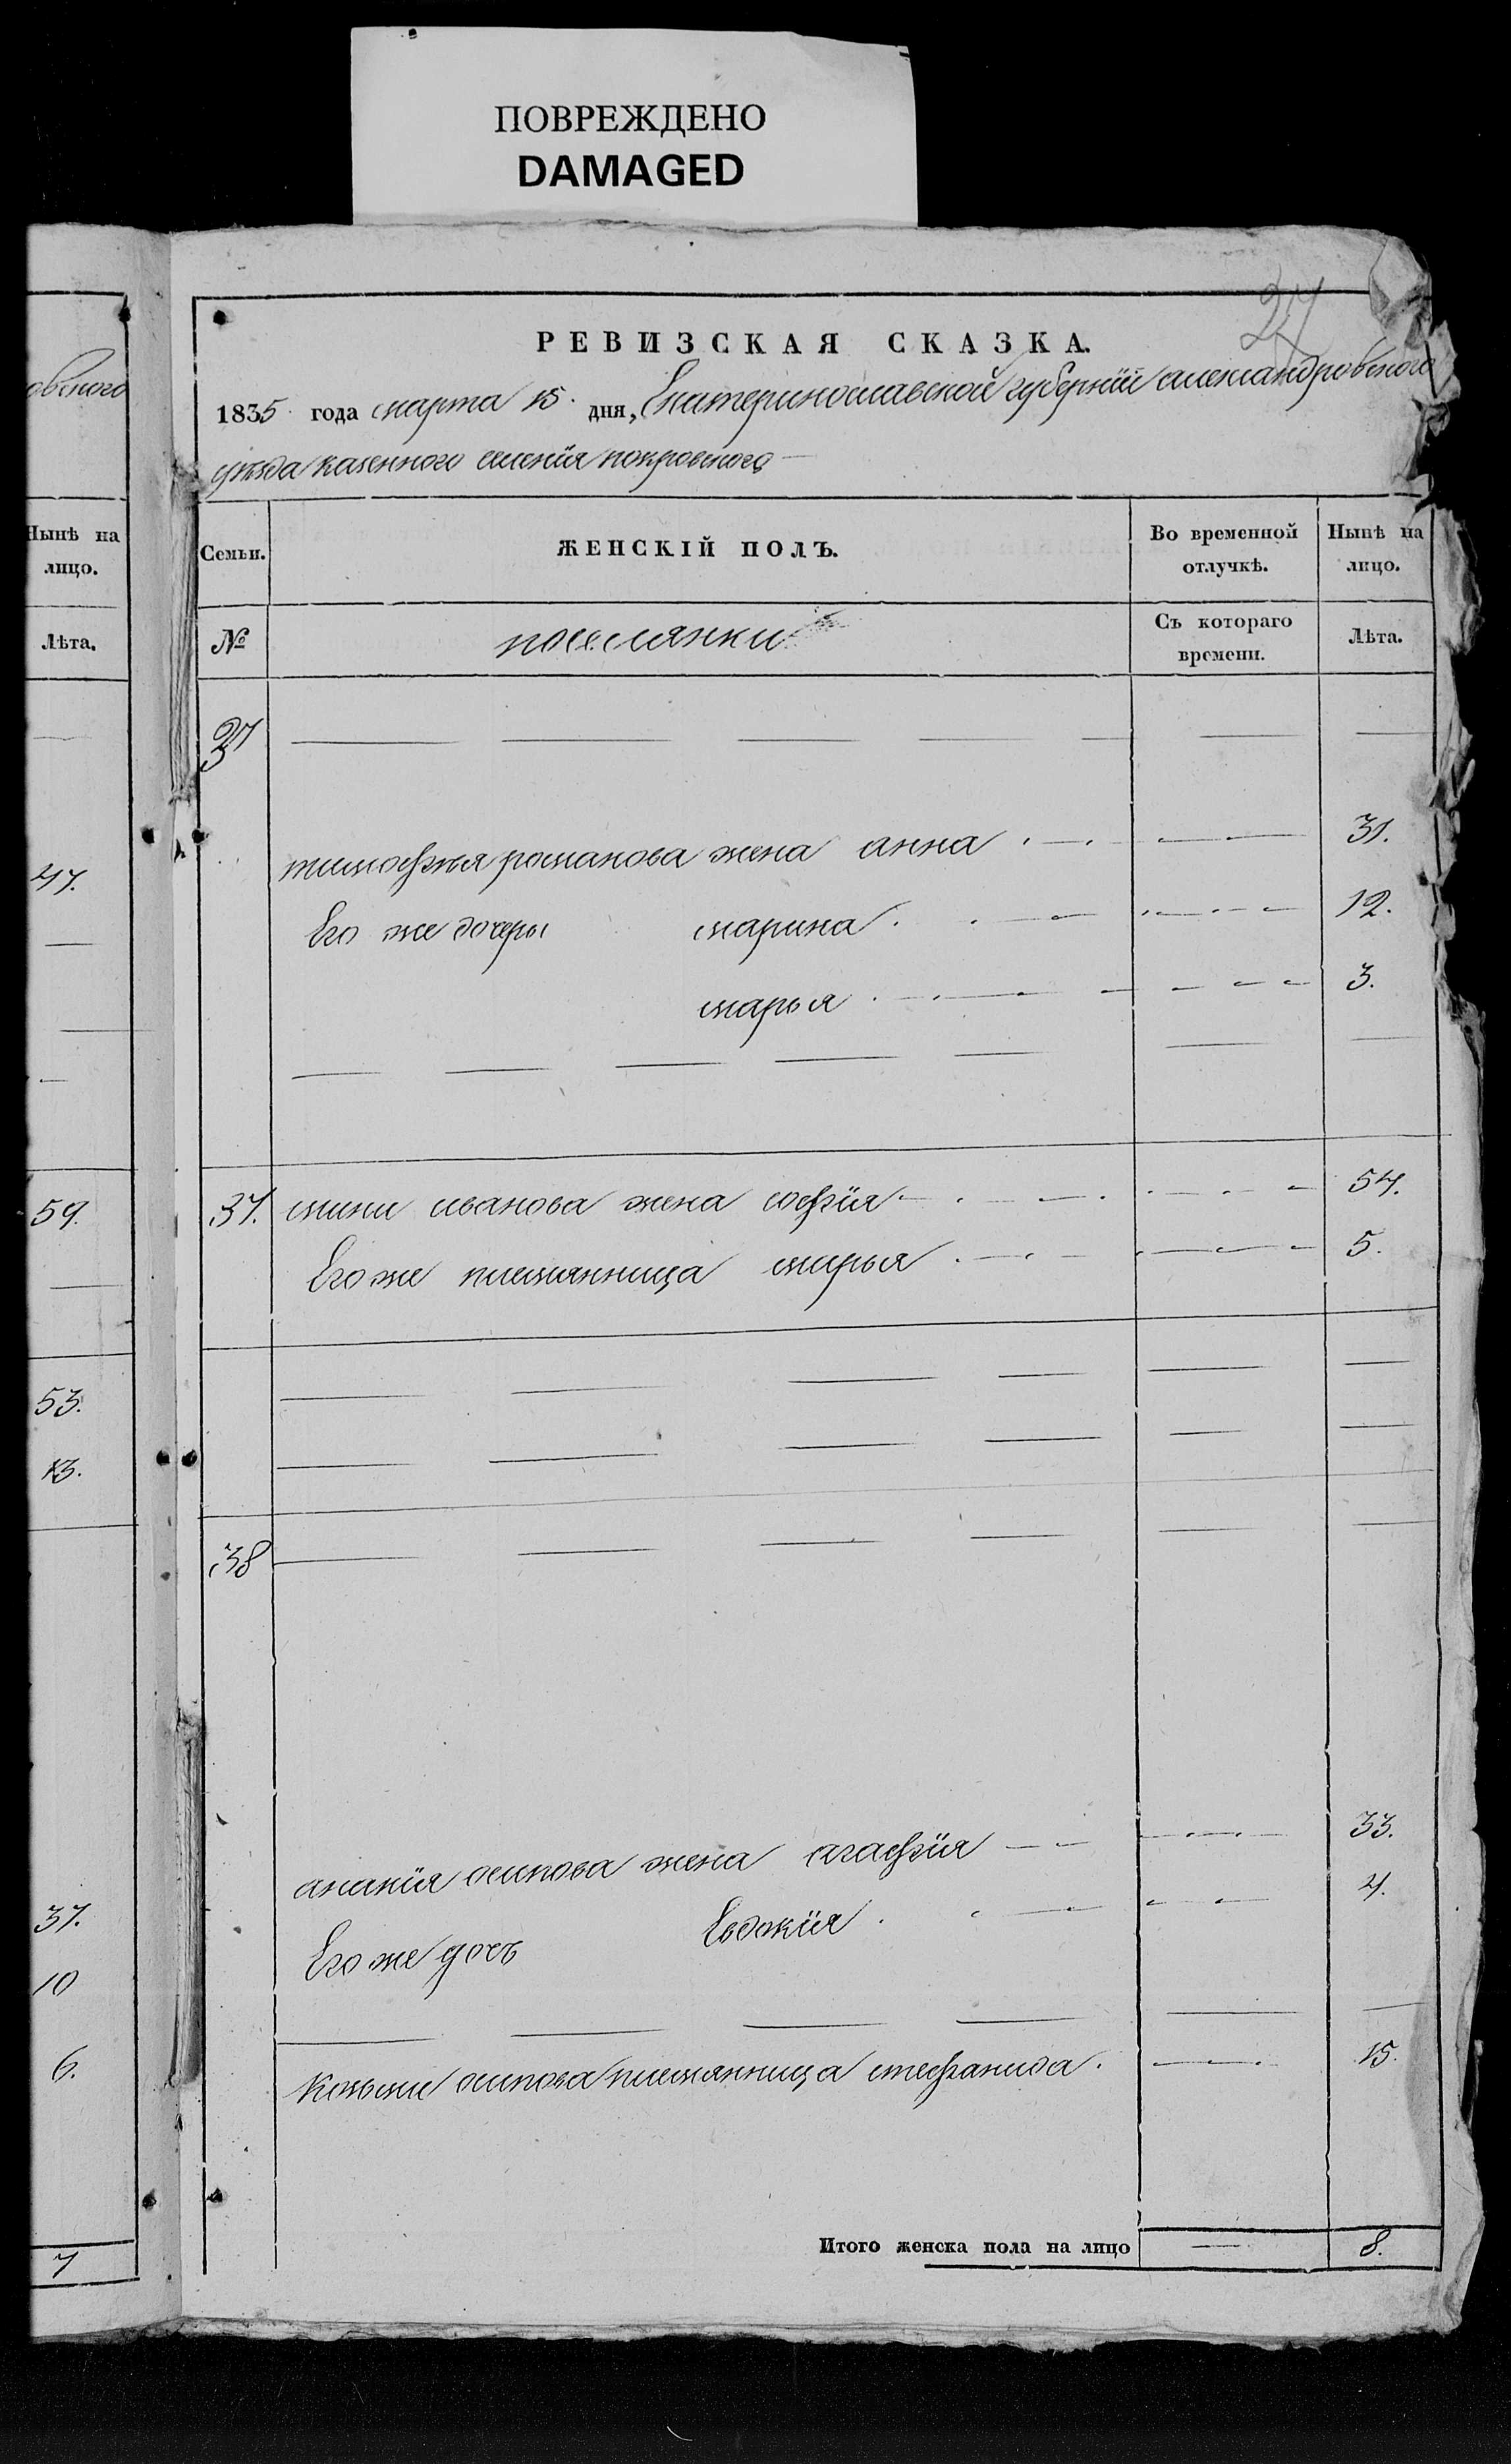 ПОВРЕЖДЕНО
DAMAGED
РЕВИЗСКАЯ СКАЗКА.
1835 года марта 15 дня, Екатеринославской губернiи александровского
уѣзда казенного селенiя покровского
Семьи.
ЖЕНСКIЙ ПОЛЪ.
Во временной отлучкѣ.
Нынѣ на лицо.
№
поселянки
Съ котораго времени.
Лѣта.
тимофея романова жена анна 31.
Его же дочеры марина 12.
марья 3.
37. мини иванова жена софiя 54.
Его же племянница марья 5.
38
ананiя осипова жена агафiя 33.
Его же дочь Евдокiя 4.
козьми осипова племянница стефанида. 15.
Итого женска пола на лицо 8.
овского
Нынѣ на лицо.
Лѣта.
47.
59.
53.
13.
37.
10
6.
7